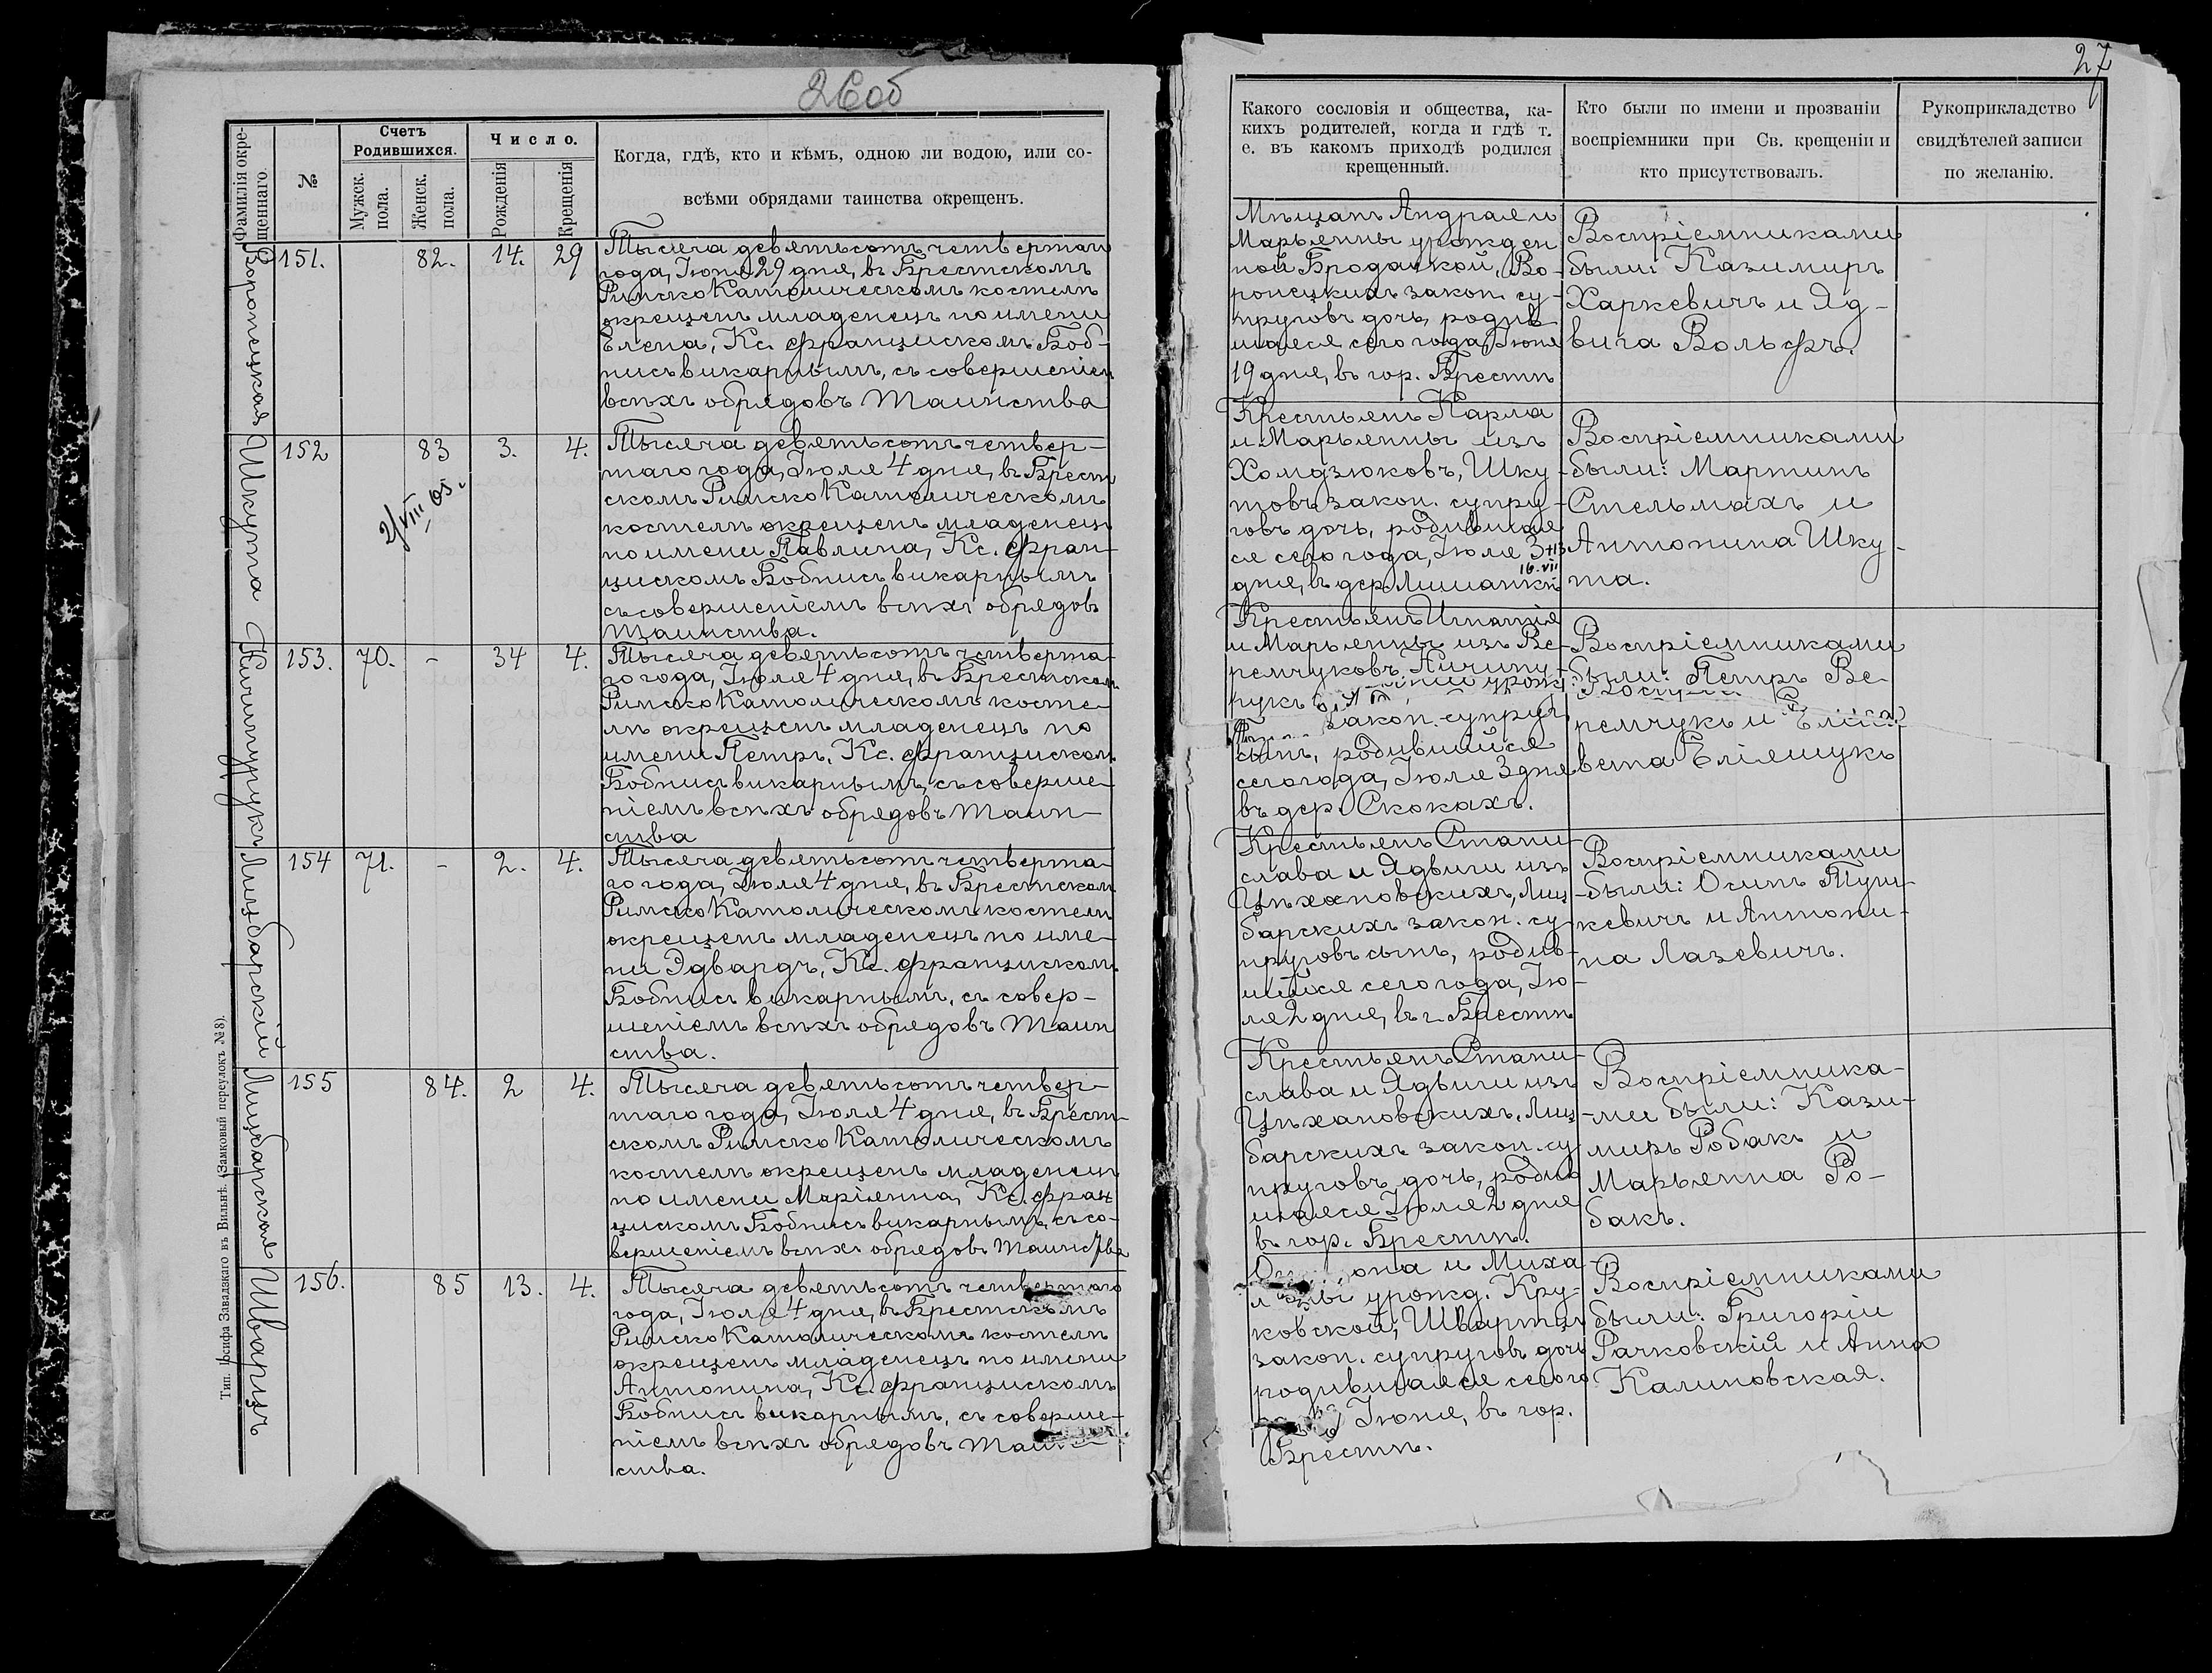 26об
Фамилія окре-
щеннаго.
№
Счетъ
Родившихся.
Мужск.
пола.
Женск.
пола.
Число.
Рожденія
Крещенія
Когда, гдѣ, кто и кѣмъ, одною ли водою, или со-
всѣми обрядами таинства окрещенъ.
Воронецкая
151.
82.
14.
29
Тысяча девятьсотъ четвертаго
года, Іюня 29 дня, въ Брестскомъ
Римско Католическомъ костелѣ
окрещенъ младенецъ по имени
Елена, Кс. Францискомъ Боб-
нисъ викарнымъ, съ совершеніем
всѣхъ обрядовъ Таинства
Шкута
152
83
3.
4.
2/VIII 05.
Тысяча девятьсотъ четвер-
таго года, Іюля 4 дня, въ Брест
скомъ Римско Католическомъ
костелѣ окрещенъ младенецъ
по имени Павлина, Кс. Фран-
цискомъ Бобнисъ викарнымъ
съ совершеніемъ всѣхъ обрядовъ
Таинства.
Ничипурукъ
153.
70.
-
34
4.
Тысяча девятьсотъ четверта-
го года, Іюля 4 дня, въ Брестском
Римско Католическомъ косте-
лѣ окрещенъ младенецъ по
имени Петръ, Кс. Францискомъ
Бобнисъ викарнымъ, съ соверше-
ніемъ всѣхъ обрядовъ Таин-
ства
Лицбарскій
154
71.
-
2.
4.
Тысяча девятьсотъ четверта-
го года, Іюля 4 дня, въ Брестском
Римско Католическомъ костелѣ
окрещенъ младенецъ по име-
ни Эдвардъ, Кс. Францискомъ
Бобнисъ викарнымъ, съ совер-
шеніемъ всѣхъ обрядовъ Таин
ства.
Лицбарская
155
84.
2
4.
Тысяча девятьсотъ четвер-
таго года, Іюля 4 дня, въ Брест-
скомъ Римско Католическомъ
костелѣ окрещенъ младенецъ
по имени Маріянна, Кс. Фран
цискомъ Бобнисъ викарнымъ, съ со-
вершеніемъ всѣхъ обрядовъ Таинства
Шварцъ
156.
85
13.
4.
Тысяча девятьсотъ четвертаго
года, Іюля 4 дня, въ Брестскомъ
Римско Католическомъ костелѣ
окрещенъ младенецъ по имени
Антонина, Кс. Францискомъ
Бобнисъ викарнымъ, съ соверше-
ніемъ всѣхъ обрядовъ Таин-
ства.
Тип. Іосифа Завадзкаго въ Вильнѣ. (Замковый переулокъ № 8).
27
Какого сословія и общества, ка-
кихъ родителей, когда и гдѣ т.
е. въ какомъ приходѣ родился
крещенный.
Кто были по имени и прозваніи
воспріемники при Св. крещеніи и
кто присутствовалъ.
Рукоприкладство
свидѣтелей записи
по желанію.
Мѣщанъ Андрея и
Марьянны урожден
ной Бродацкой, Во-
ронецкихъ закон. су-
пруговъ дочь, родив
шаяся сего года, Іюня
19 дня, въ гор. Брестѣ
Воспріемниками
были: Казимиръ
Харкевичъ и Яд-
вига Вольфъ.
Крестьянъ Карла
и Марьянны изъ
Хомдзюковъ, Шку
товъ закон. супру-
говъ дочь, родившая
ся сего года, Іюля 3+13
16.VII
дня, въ дер.
Воспріемниками
были: Мартинъ
Стельмахъ и
Антонина Шку-
та.
Крестьянъ Игнатія
и Марьянны изъ Ве-
ремчуковъ Ничипу-
рукъ
закон. супруг
сынъ, родившійся
сего года, Іюля 3 дня
въ дер. Скокахъ.
Воспріемниками
были: Петръ Ве
ремчукъ и Елиса
вета
Крестьянъ Стани
слава и Ядвиги изъ
Цѣхановскихъ, Лиц-
барскихъ закон. су-
пруговъ сынъ, родив-
шійся сего года, Ію-
ля 2 дня, въ г. Брестѣ
Воспріемниками
были: Осипъ Туш-
кевичъ и Антони-
на Лазевичъ.
Крестьянъ Стани
слава и Ядвиги изъ
Цѣхановскихъ, Лиц-
барскихъ закон. су
пруговъ дочь, родив
шаяся Іюля 2 дня
въ гор. Брестѣ.
Воспріемника-
ми были: Кази-
миръ Робакъ и
Марьянна Ро-
бакъ.
и Миха
урожд. Кру-
ковской, Шварцъ
закон. супруговъ дочь
родившаяся сего го
Іюня, въ гор.
Брестѣ.
Воспріемниками
были: Григорій
Рачковскій и Анна
Калиновская.